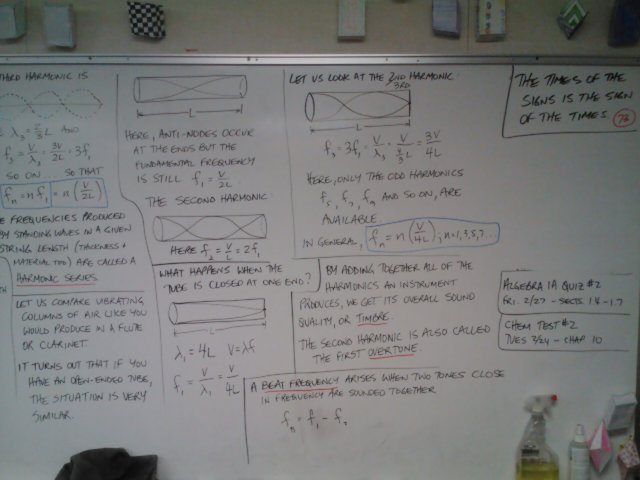 THIRD HARMONIC IS
λ₃ = 2/3 L AND
f₃ = V/λ₃ = 3V/2L = 3f₁
SO ON ... SO THAT
fₙ = n f₁ = n (V/2L)
FREQUENCIES PRODUCED
BY STANDING WAVES IN A GIVEN
STRING LENGTH (THICKNESS &
MATERIAL TOO) ARE CALLED A
HARMONIC SERIES.
LET US COMPARE VIBRATING
COLUMNS OF AIR LIKE YOU
WOULD PRODUCE IN A FLUTE
OR CLARINET.
IT TURNS OUT THAT IF YOU
HAVE AN OPEN-ENDED TUBE,
THE SITUATION IS VERY
SIMILAR.
L
HERE, ANTI-NODES OCCUR
AT THE ENDS BUT THE
FUNDAMENTAL FREQUENCY
IS STILL f₁ = V/2L
THE SECOND HARMONIC:
HERE f₂ = V/L = 2f₁
WHAT HAPPENS WHEN THE
TUBE IS CLOSED AT ONE END?
L
λ₁ = 4L V = λf
f₁ = V/λ₁ = V/4L
LET US LOOK AT THE 2ND HARMONIC:
3RD
L
f₃ = 3f₁ = V/λ₃ = V/(4/3 L) = 3V/4L
HERE, ONLY THE ODD HARMONICS
f₅, f₇, f₉ AND SO ON, ARE
AVAILABLE.
IN GENERAL, fₙ = n(V/4L), n=1,3,5,7..
BY ADDING TOGETHER ALL OF THE
HARMONICS AN INSTRUMENT
PRODUCES, WE GET ITS OVERALL SOUND
QUALITY, OR TIMBRE.
THE SECOND HARMONIC IS ALSO CALLED
THE FIRST OVERTONE
A BEAT FREQUENCY ARISES WHEN TWO TONES CLOSE
IN FREQUENCY ARE SOUNDED TOGETHER
f_B = f₁ - f₂
THE TIMES OF THE
SIGNS IS THE SIGN
OF THE TIMES
73
ALGEBRA 1A QUIZ #2
FRI. 2/27 - SECTS 1.4-1.7
CHEM TEST #2
TUES 3/24 - CHAP 10